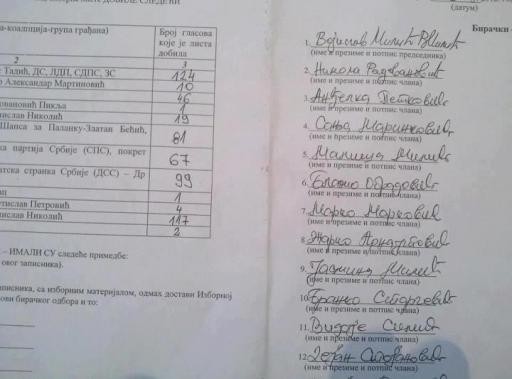 ДОБИЛЕ СЛЕДЕЋИ
(датум)
-коалиција-група грађана)
Број гласова које је листа добила
2
3
Тадић, ДС, ЛДП, СДПС, ЗС
124
Александар Мартиновић
10
46
овановић Пикља
1
ислав Николић
19
Шанса за Паланку-Златан Бећић,
81
ка партија Србије (СПС), покрет
67
атска странка Србије (ДСС) – Др
99
1
тислав Петровић
4
ислав Николић
117
2
– ИМАЛИ СУ следеће примедбе:
овог записника).
аписника, са изборним материјалом, одмах достави Изборној
ови бирачког одбора и то:
Бирачки
1. Војислав Милић
(име и презиме и потпис председника)
2. Никола Радовановић
(име и презиме и потпис члана)
3. Анђелка Петковић
(име и презиме и потпис члана)
4. Сања Маринковић
(име и презиме и потпис члана)
5. Милић
(име и презиме и потпис члана)
6. Обрадовић
(име и презиме и потпис члана)
7. Марко Марковић
(име и презиме и потпис члана)
8. Жарко
(име и презиме и потпис члана)
9. Јасмина Милић
(име и презиме и потпис члана)
10. Бранко
(име и презиме и потпис члана)
11. Видоје
(име и презиме и потпис члана)
12. Стојановић
(име и презиме и потпис члана)